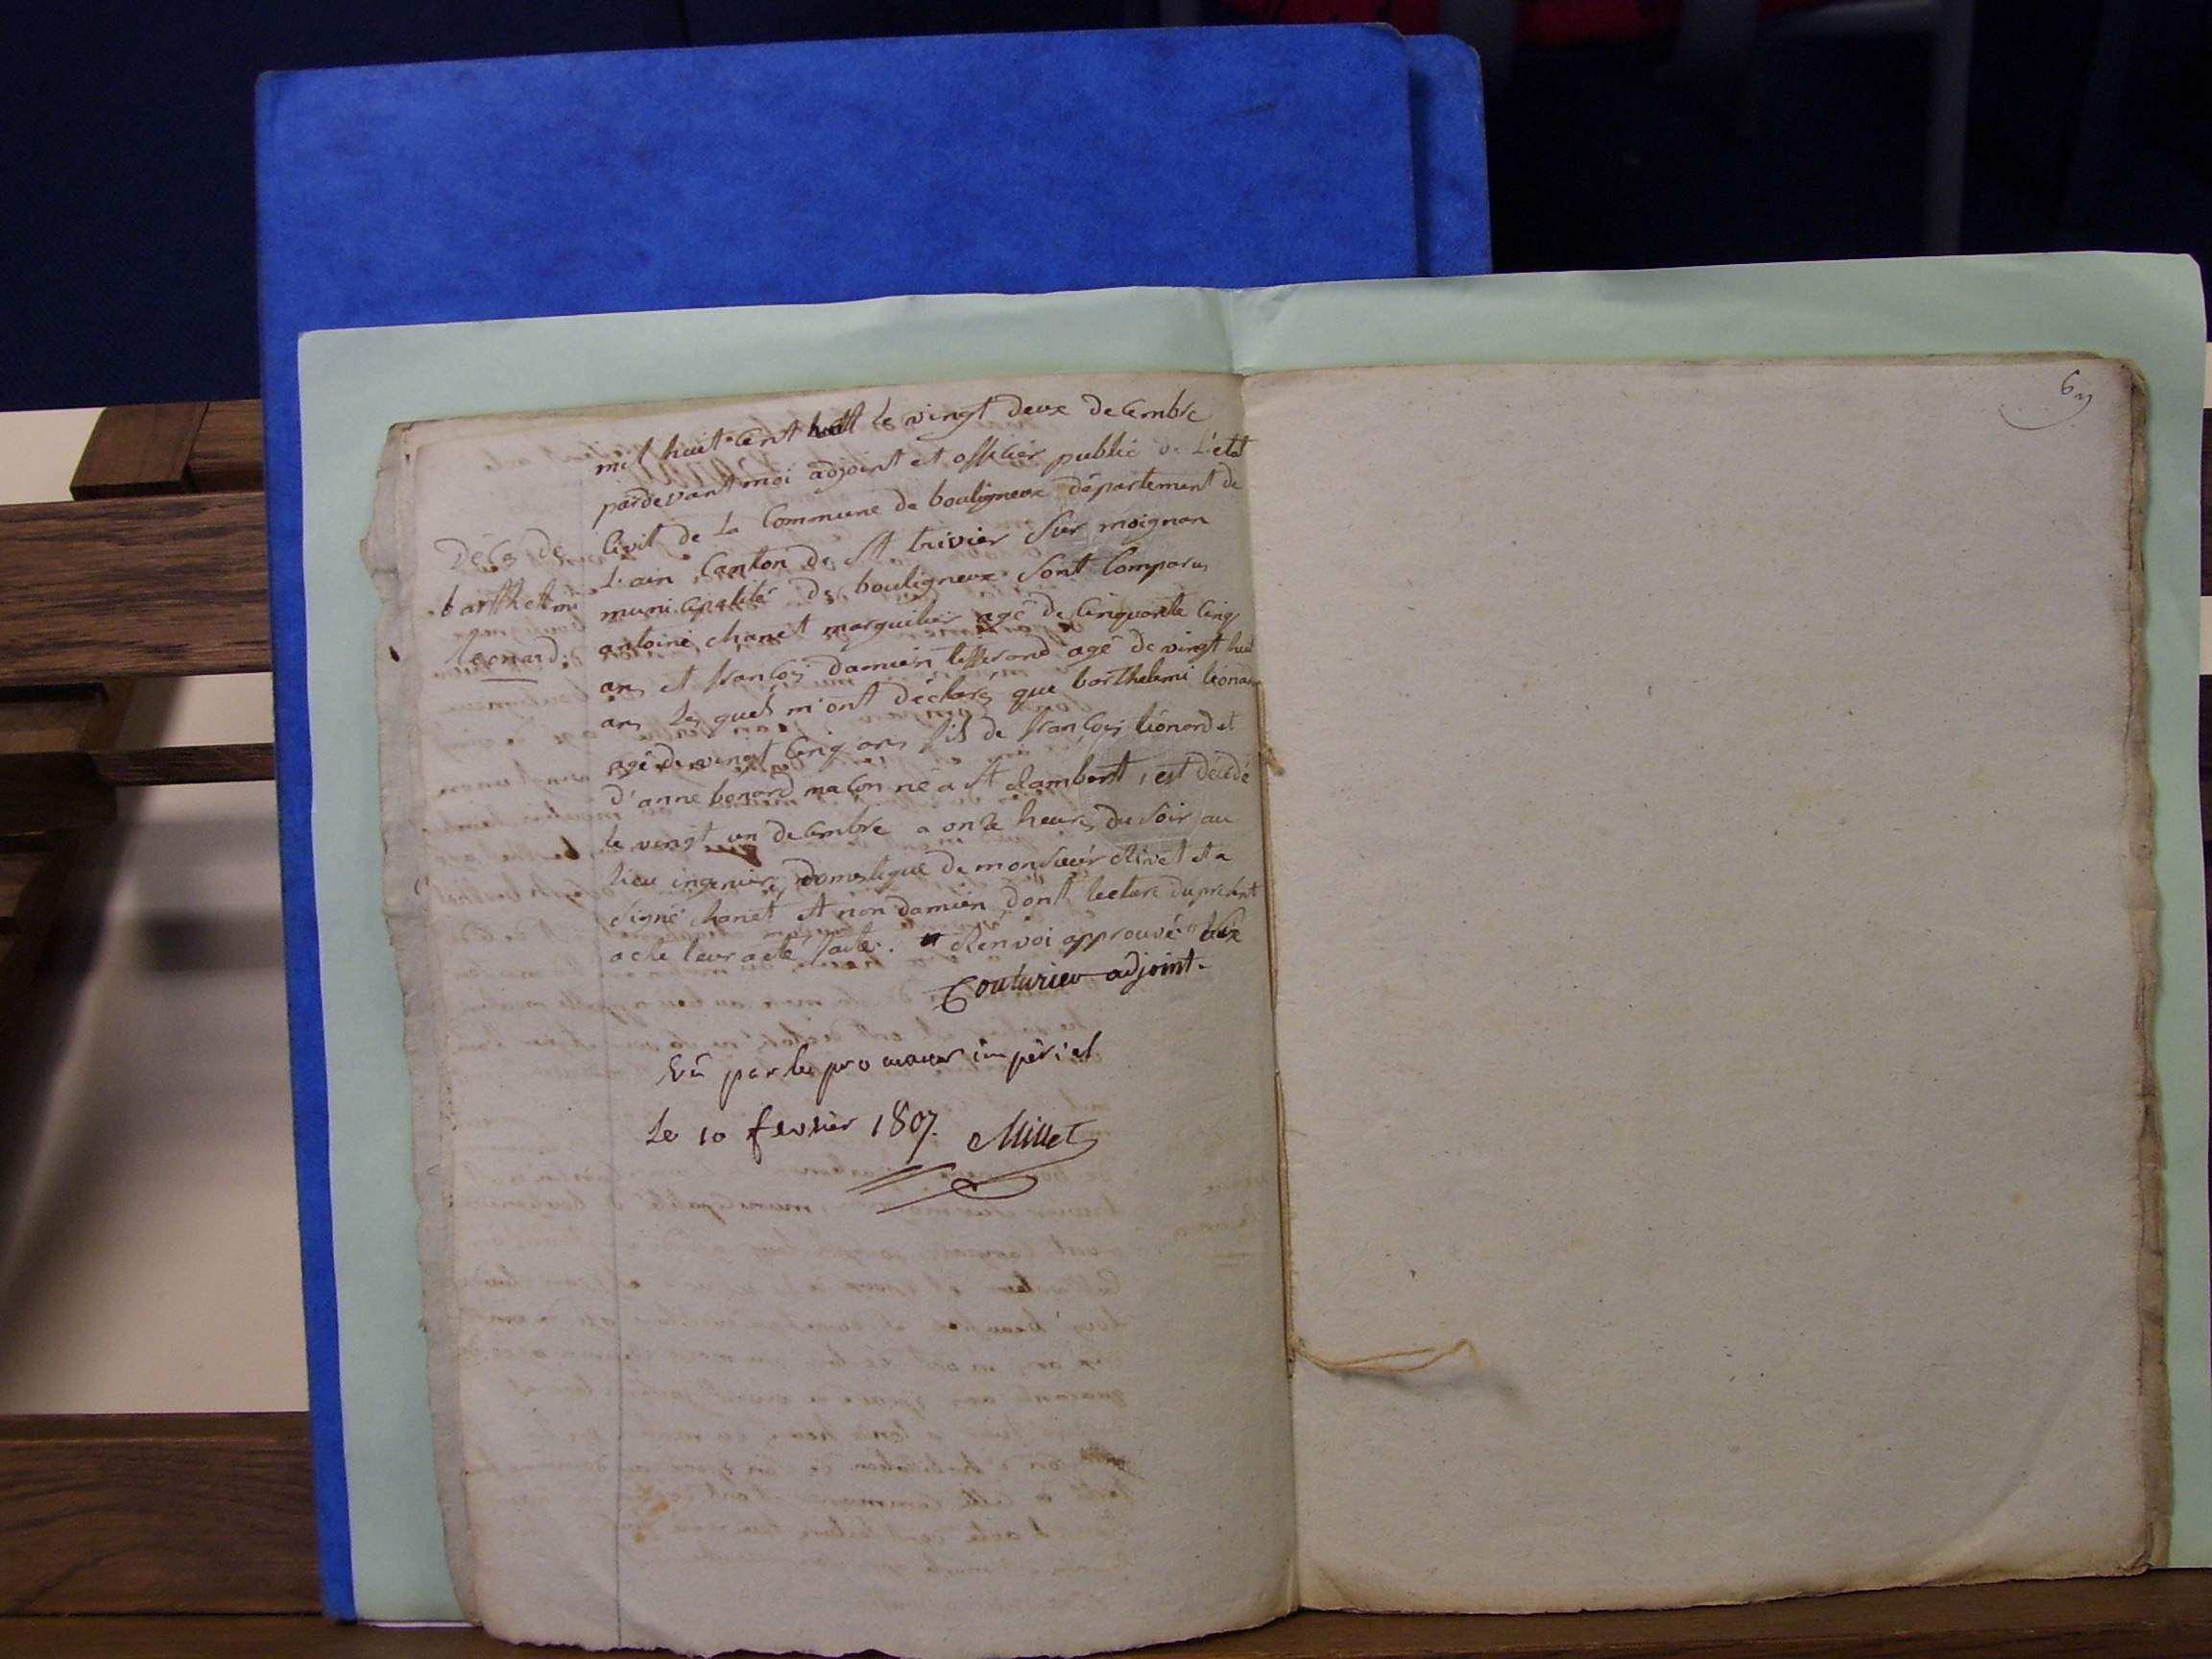 mil huit cent huit le vingt deux decembre
pardevant moi adjoint et officier public de L'etat
Civil de la Commune de bouligneux département de
L'ain Canton de St trivier Sur moignan
municipalité de bouligneux Sont Comparus
antoine chanet marguilier agé de Cinquante Cinq
ans et françois damien tisserand agé de vingt huit
ans lesquels m'ont déclarés que barthelemi léonard
agé de vingt cinq ans fils de françois léonard et
d'anne bonard maçon né a St Rambert, est décédé
le vingt un decembre a onze heures du Soir au
lieu domestique de monsieur Rivet et a
Signé chanet et non damien dont lecture du présent
acte leur a été faite. Renvoi approuvé
Couturier adjoint.
Décès de
barthelemi
leonard.
Vû par le procureur impérial
Le 10 fevrier 1807. Millet